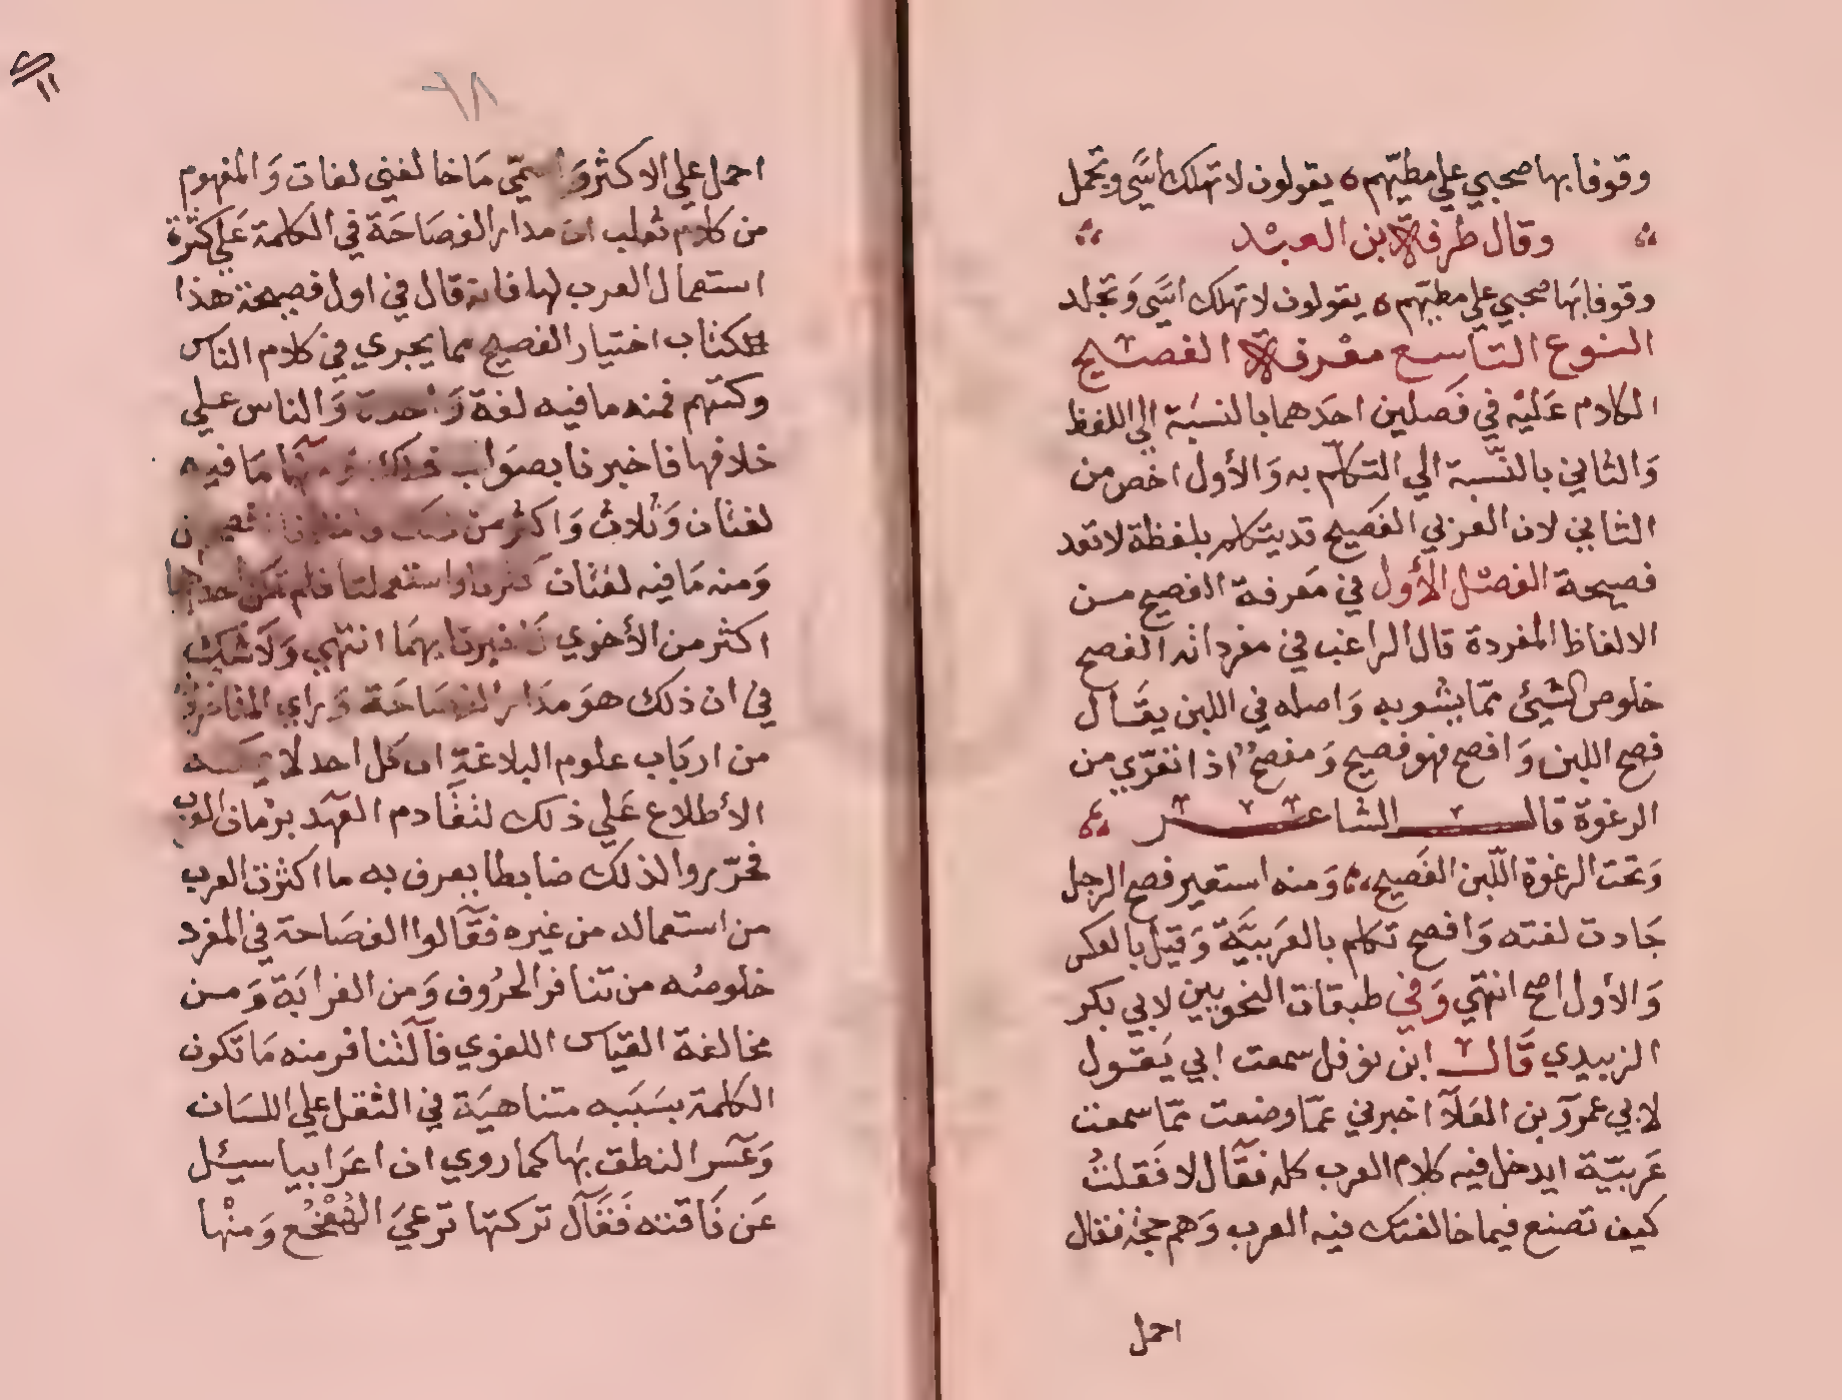 وقوفا بها صحبي علي مطيّهم ٥ يقولون لا تهلك اسًي وتجمل
وقال طرفة بن العبْد
وقوفا بهَا صحبي علي مطيّهم ٥ يقولون لا تهلك اسًي وَتجلد
النوع التاسع معْرفة الفصيْح
الكلام عَليْه في فَصلين احَدهما بالنسْبَة الي اللفظ
وَالثاني بالنّسبة الي التكلّم به وَالأول اخص من
الثاني لان العربي الفَصيح قد يتكلم بلفظة لا تعد
فصيحة الفصْل الأول في مَعرفة الفصيح من
الالفاظ المفردة قال الراغب في مفرداته الفصح
خلوص الشيئ ممّا يشوبه وَاصله في اللبن يقَال
فصح اللبن وَافصح فهو فصيح وَمفصح اذا تعَرّي من
الرغوة قال الشاعر
وَتحت الرغوة اللّبن الفَصيح، وَمنه استعير فصح الرجل
جَادت لغته وَافصح تكلم بالعَربيَّة وَقيل بالعكس
وَالأول اصح انتهي وَفي طبقات النحويين لابي بكر
الزبيدي قَال ابن نوفل سمعت ابي يَقول
لابي عمرو بن العَلآ اخبرني عمّا وضعت ممّا سمعت
عَربيّة ايدخل فيه كلام العرب كله فقَال لا فَقلتُ
كيف تصنع فيما خالفتك فيه العرب وَهم حجة فقال
احمل
٦٨
احمل علي الاكثر وَاسمّي مَا خالفني لغات وَالمفهوم
من كلام ثعلب ان مدار الفصَاحَة في الكلمة عَلي كثرة
استعمال العرب لها فانه قال في اول فصيحه هذا
الكتاب اختيار الفصيح مما يجري في كلام الناس
وكتبهم فمنه ما فيه لغة وَاحدة وَالناس علي
خلافها فاخبرنا بصوَاب ذلك وَمنها مَا فيه
لغتان وَثلاث وَاكثر من ذلك
وَمنه مَا فيه لغتان كثرتا واستعملتا فلم تكن احداهما
اكثر من الأخري فاخبرنا بهمَا انتهي وَلا شك
في ان ذلك هوَ مدَار الفصَاحَة وَراي المتاخرون
من اربَاب علوم البلاغة ان كل احد لا يمكنه
الأطلاع عَلي ذلك لتقادم العَهد بزمان العرب
فحرّروا لذلك ضابطا يعرف به ما اكثرت العرب
من استعماله من غيره فقالوا الفصَاحة في المفرد
خلوصُه من تنافر الحرُوف وَمن الغرابَة وَمن
مخالفة القيَاس اللغوي فالتنافر منه مَا تكون
الكلمة بسَبَبه متناهيَة في الثقل علي اللسَان
وَعسر النطق بهَا كما روي ان اعرَابيا سيئل
عَن نَاقته فَقَال تركتها ترعيَ الهُعْخُع وَمنْها